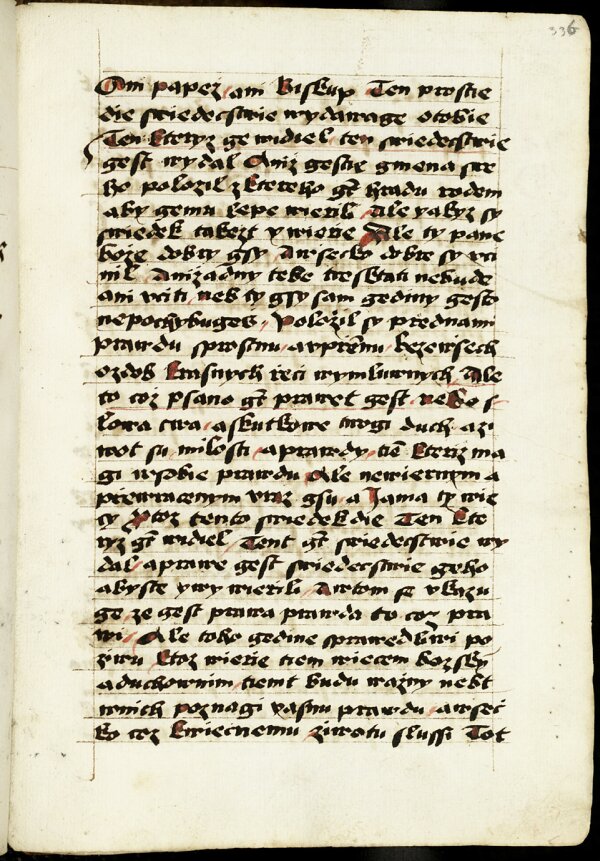 336
Ani papez ani Biskup Ten prostie
die swiedecstwie wydawage otobie
Ten kteryz ge widiel ten swiedecstwie
gest wydal Aniz gestie gmena swe
ho polozil z ktereho gt hradu rodem
aby gemu lepe wierili Ale yabyz sy
swiedek takezt y wierie Ale ty pane
boze dobry gsy awsecko dobre sy vci
nil Anizadny tebe tresktati nebude
ani vciti neb ty gsy sam gediny gesto
nepochybuges Polozil sy prednami
prawdu sprostnu aupremu bezewsech
ozdob krasnych reci wymluwnych Ale
to coz psano gt prawet gest nebo s
lowa twa askutkowe twogi duch azi
wot su milosti aprawdy tiem kteriz ma
gi wsobie prawdu Ale newiernym a
prewracenym vraz gsu a Jama ty wie
cy Protoz tento swiedek die Ten kte
ryz gt widiel Tent gt swiedecstwie wy
dal aprawe gest swiedecstwie geho
abyste ywy wierili Awtom se vkazu
ge ze gest prawa prawda to coz pra
wi Ale toho gedine sprawedliwi po
ziwu ktoz wierie tiem wiecem bozsky
aduchownim tiemt budu wazny nebt
wnich poznagi yasnu prawdu awsec
ko coz kwiecnemu ziwotu slussi Tot